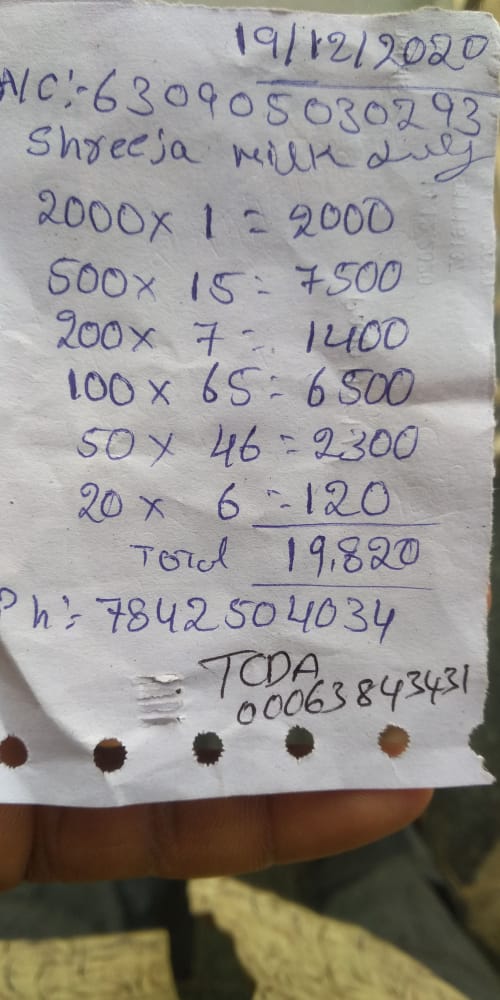 19/12/2020
A/C:- 6309050302 93
Shreeja milk
2000 x 1 = 2000
500 x 15 = 7500
200 x 7 = 1400
100 x 65 = 6500
50 x 46 = 2300
20 x 6 = 120
Total 19,820
Ph:- 7842504034
TCDA
00063843431